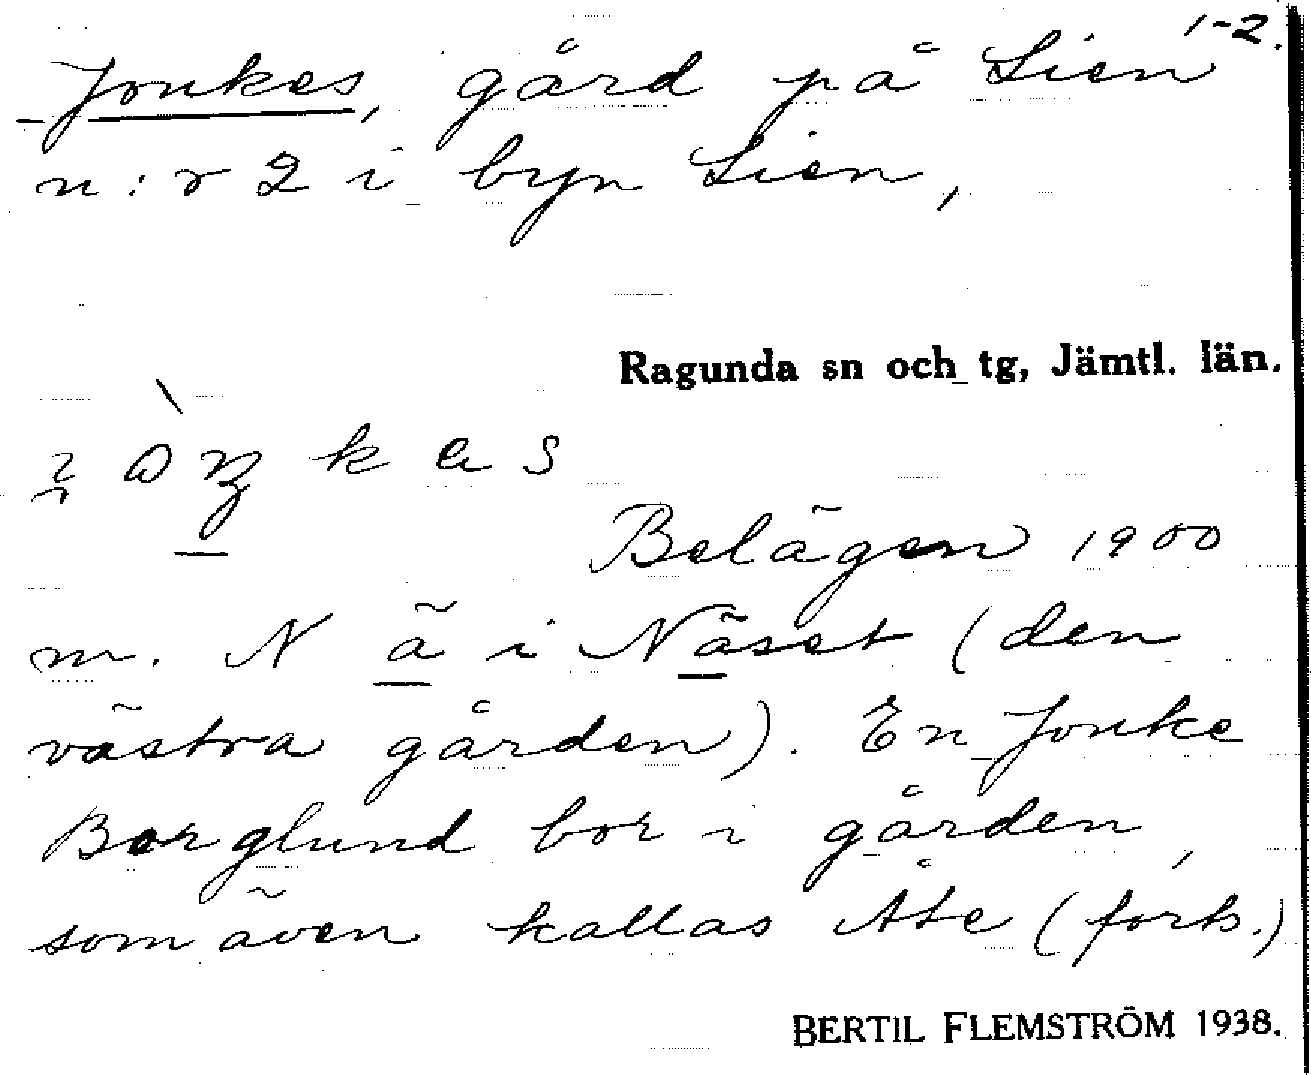 1-2.
Jonkes, gård på Lien
n:r 2 i byn Lien,
Ragunda sn och tg, Jämtl. län.
Belägen 1900
m. N ä i Näset (den
västra gården). En Jonke
Borglund bor i gården,
som även kallas Åte (forts.)
BERTIL FLEMSTRÖM 1938.